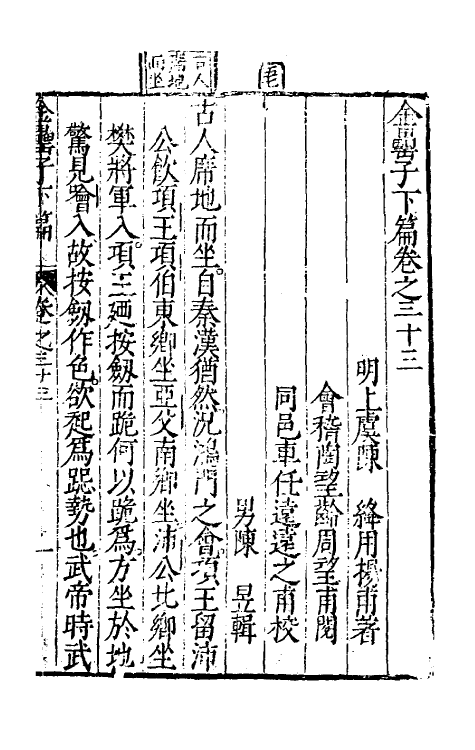 金罍子下篇卷之三十三
明上虞陳　絳用揚甫著
會稽陶望齡周望甫閱
同邑車任遠遠之甫校
男陳　昱輯
古人席地而坐自秦漢猶然沉鴻門之會項王留沛
公飲項王項伯東鄉坐亞父南鄉坐沛公北鄉坐
樊將軍入項王廼按劔而跪何以跪為方坐於地
驚見噲入故按劔作色欲起為跽勢也武帝時武
金罍子下篇　卷之三十三　一
古人
席地
而坐